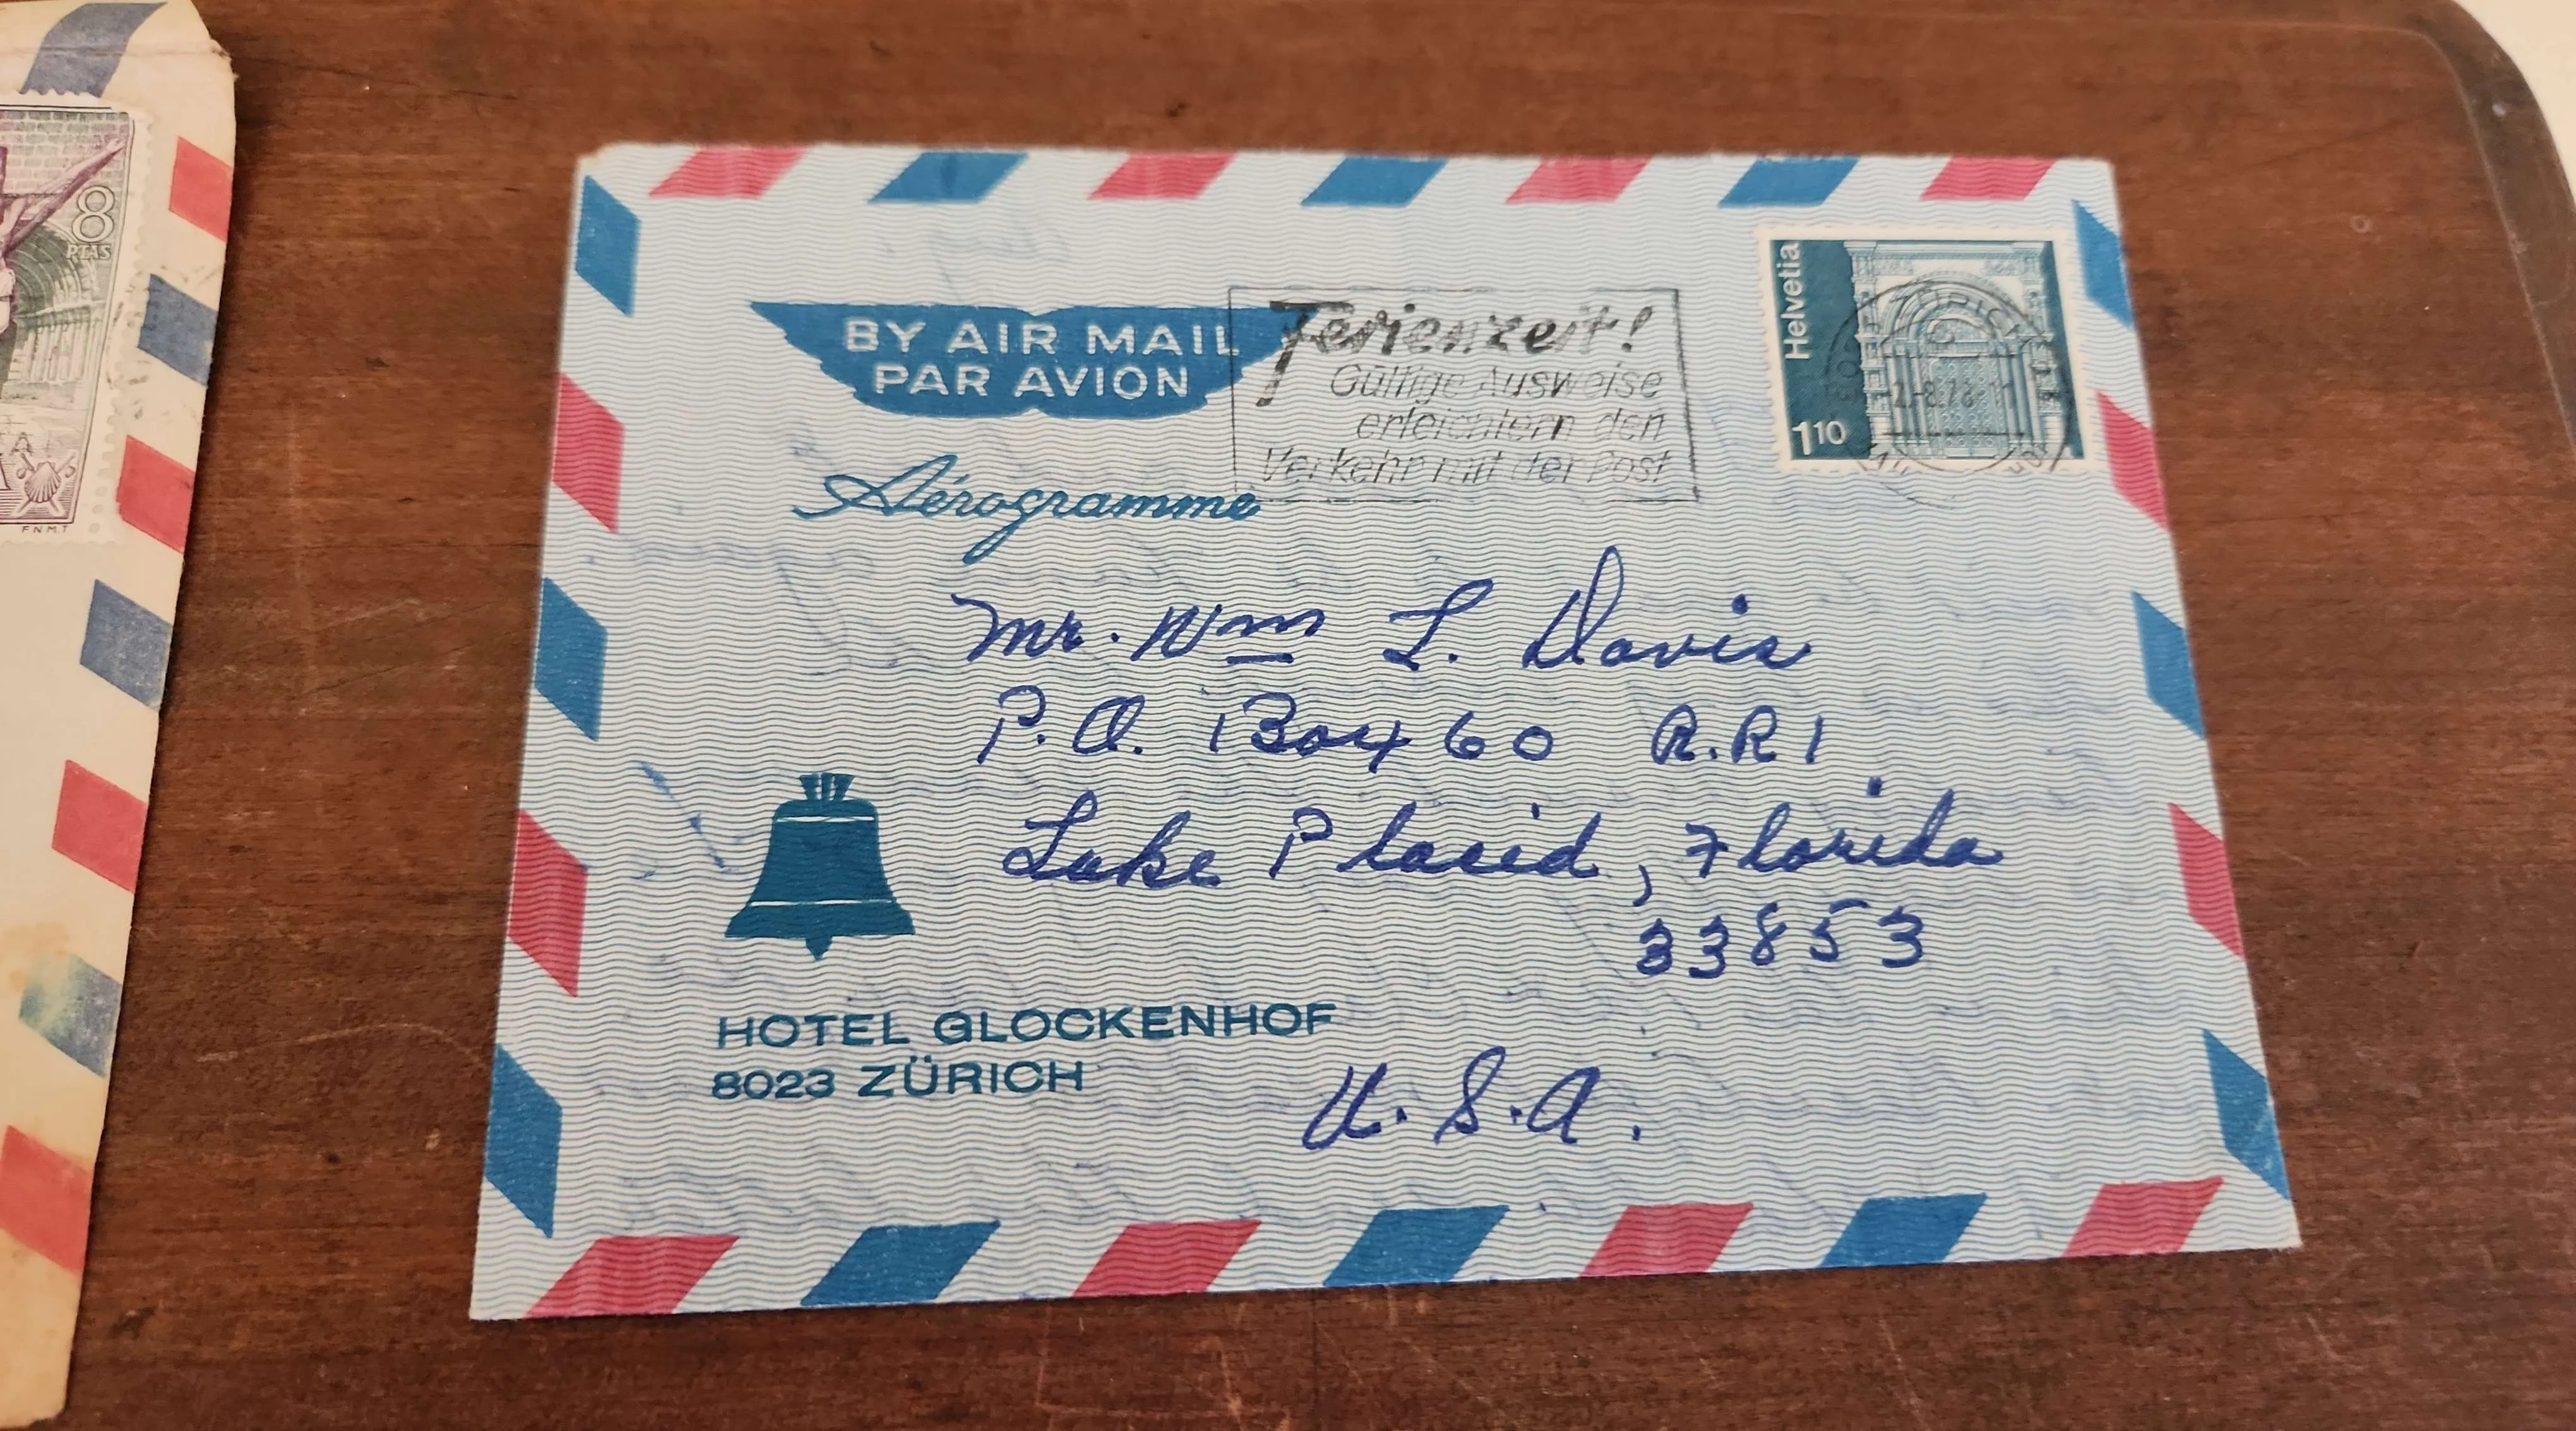 8
PTAS
F.N.M.T
BY AIR MAIL
PAR AVION
Aérogramme
Ferienzeit!
Gültige Ausweise
erleichtern den
Verkehr mit der Post
Helvetia
1 10
ZÜRICH
Mr. Wm L. Davis
P.O. Box 60 R.R 1
Lake Placid, Florida
33853
U.S.A.
HOTEL GLOCKENHOF
8023 ZÜRICH